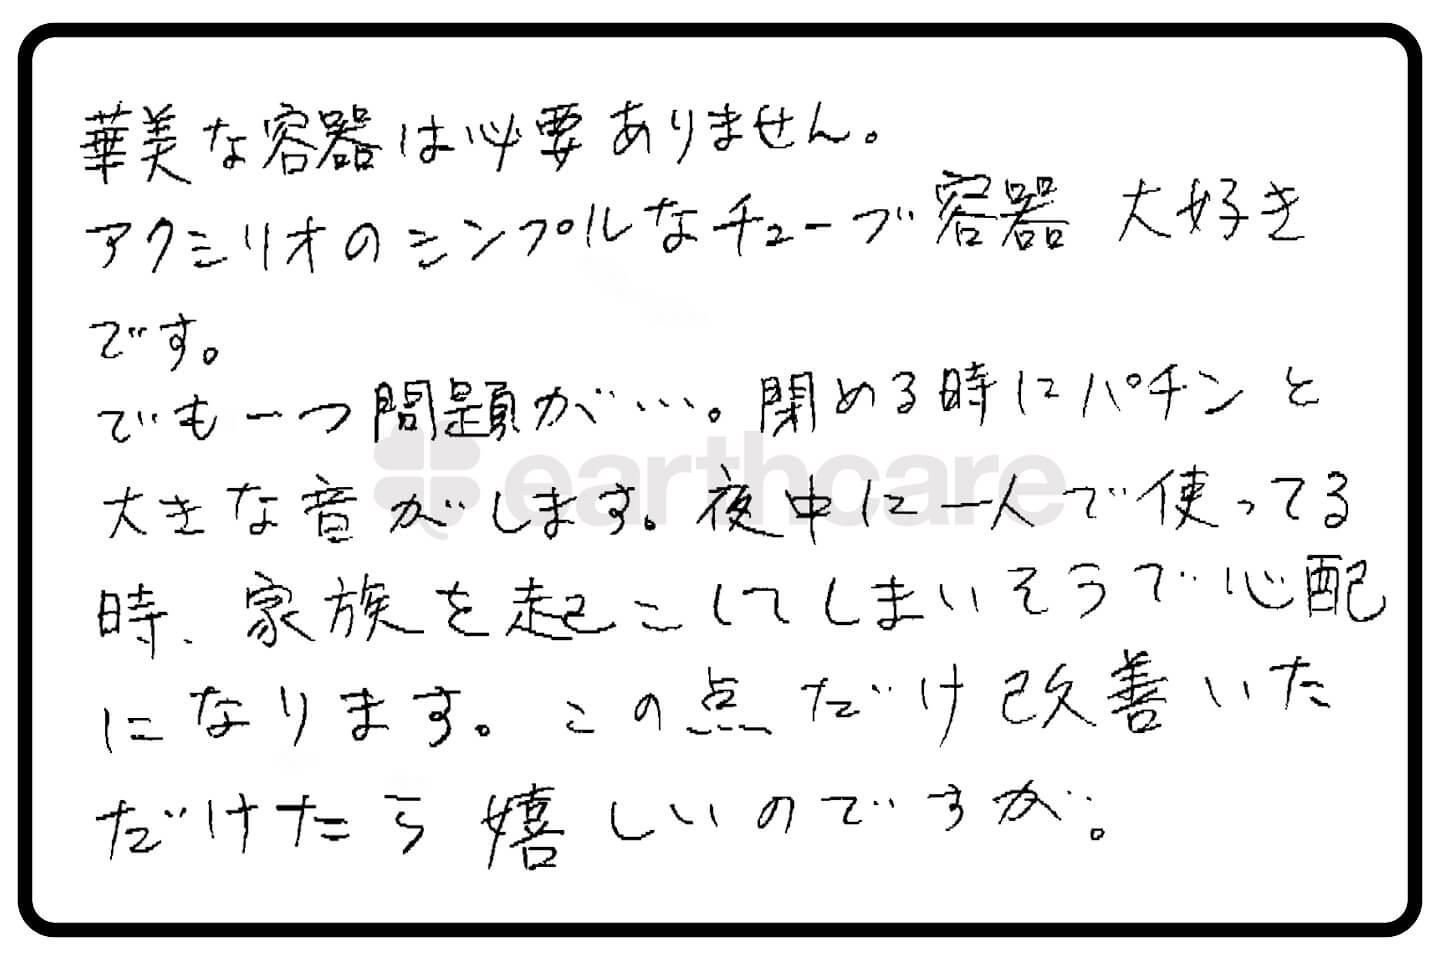 華美な容器は必要ありません。
アクシリオのシンプルなチューブ容器 大好き
です。
でも一つ問題が…。閉める時にパチンと
大きな音がします。夜中に一人で使ってる
時、家族を起こしてしまいそうで心配
になります。この点だけ改善いた
だけたら嬉しいのですが。
earthcare